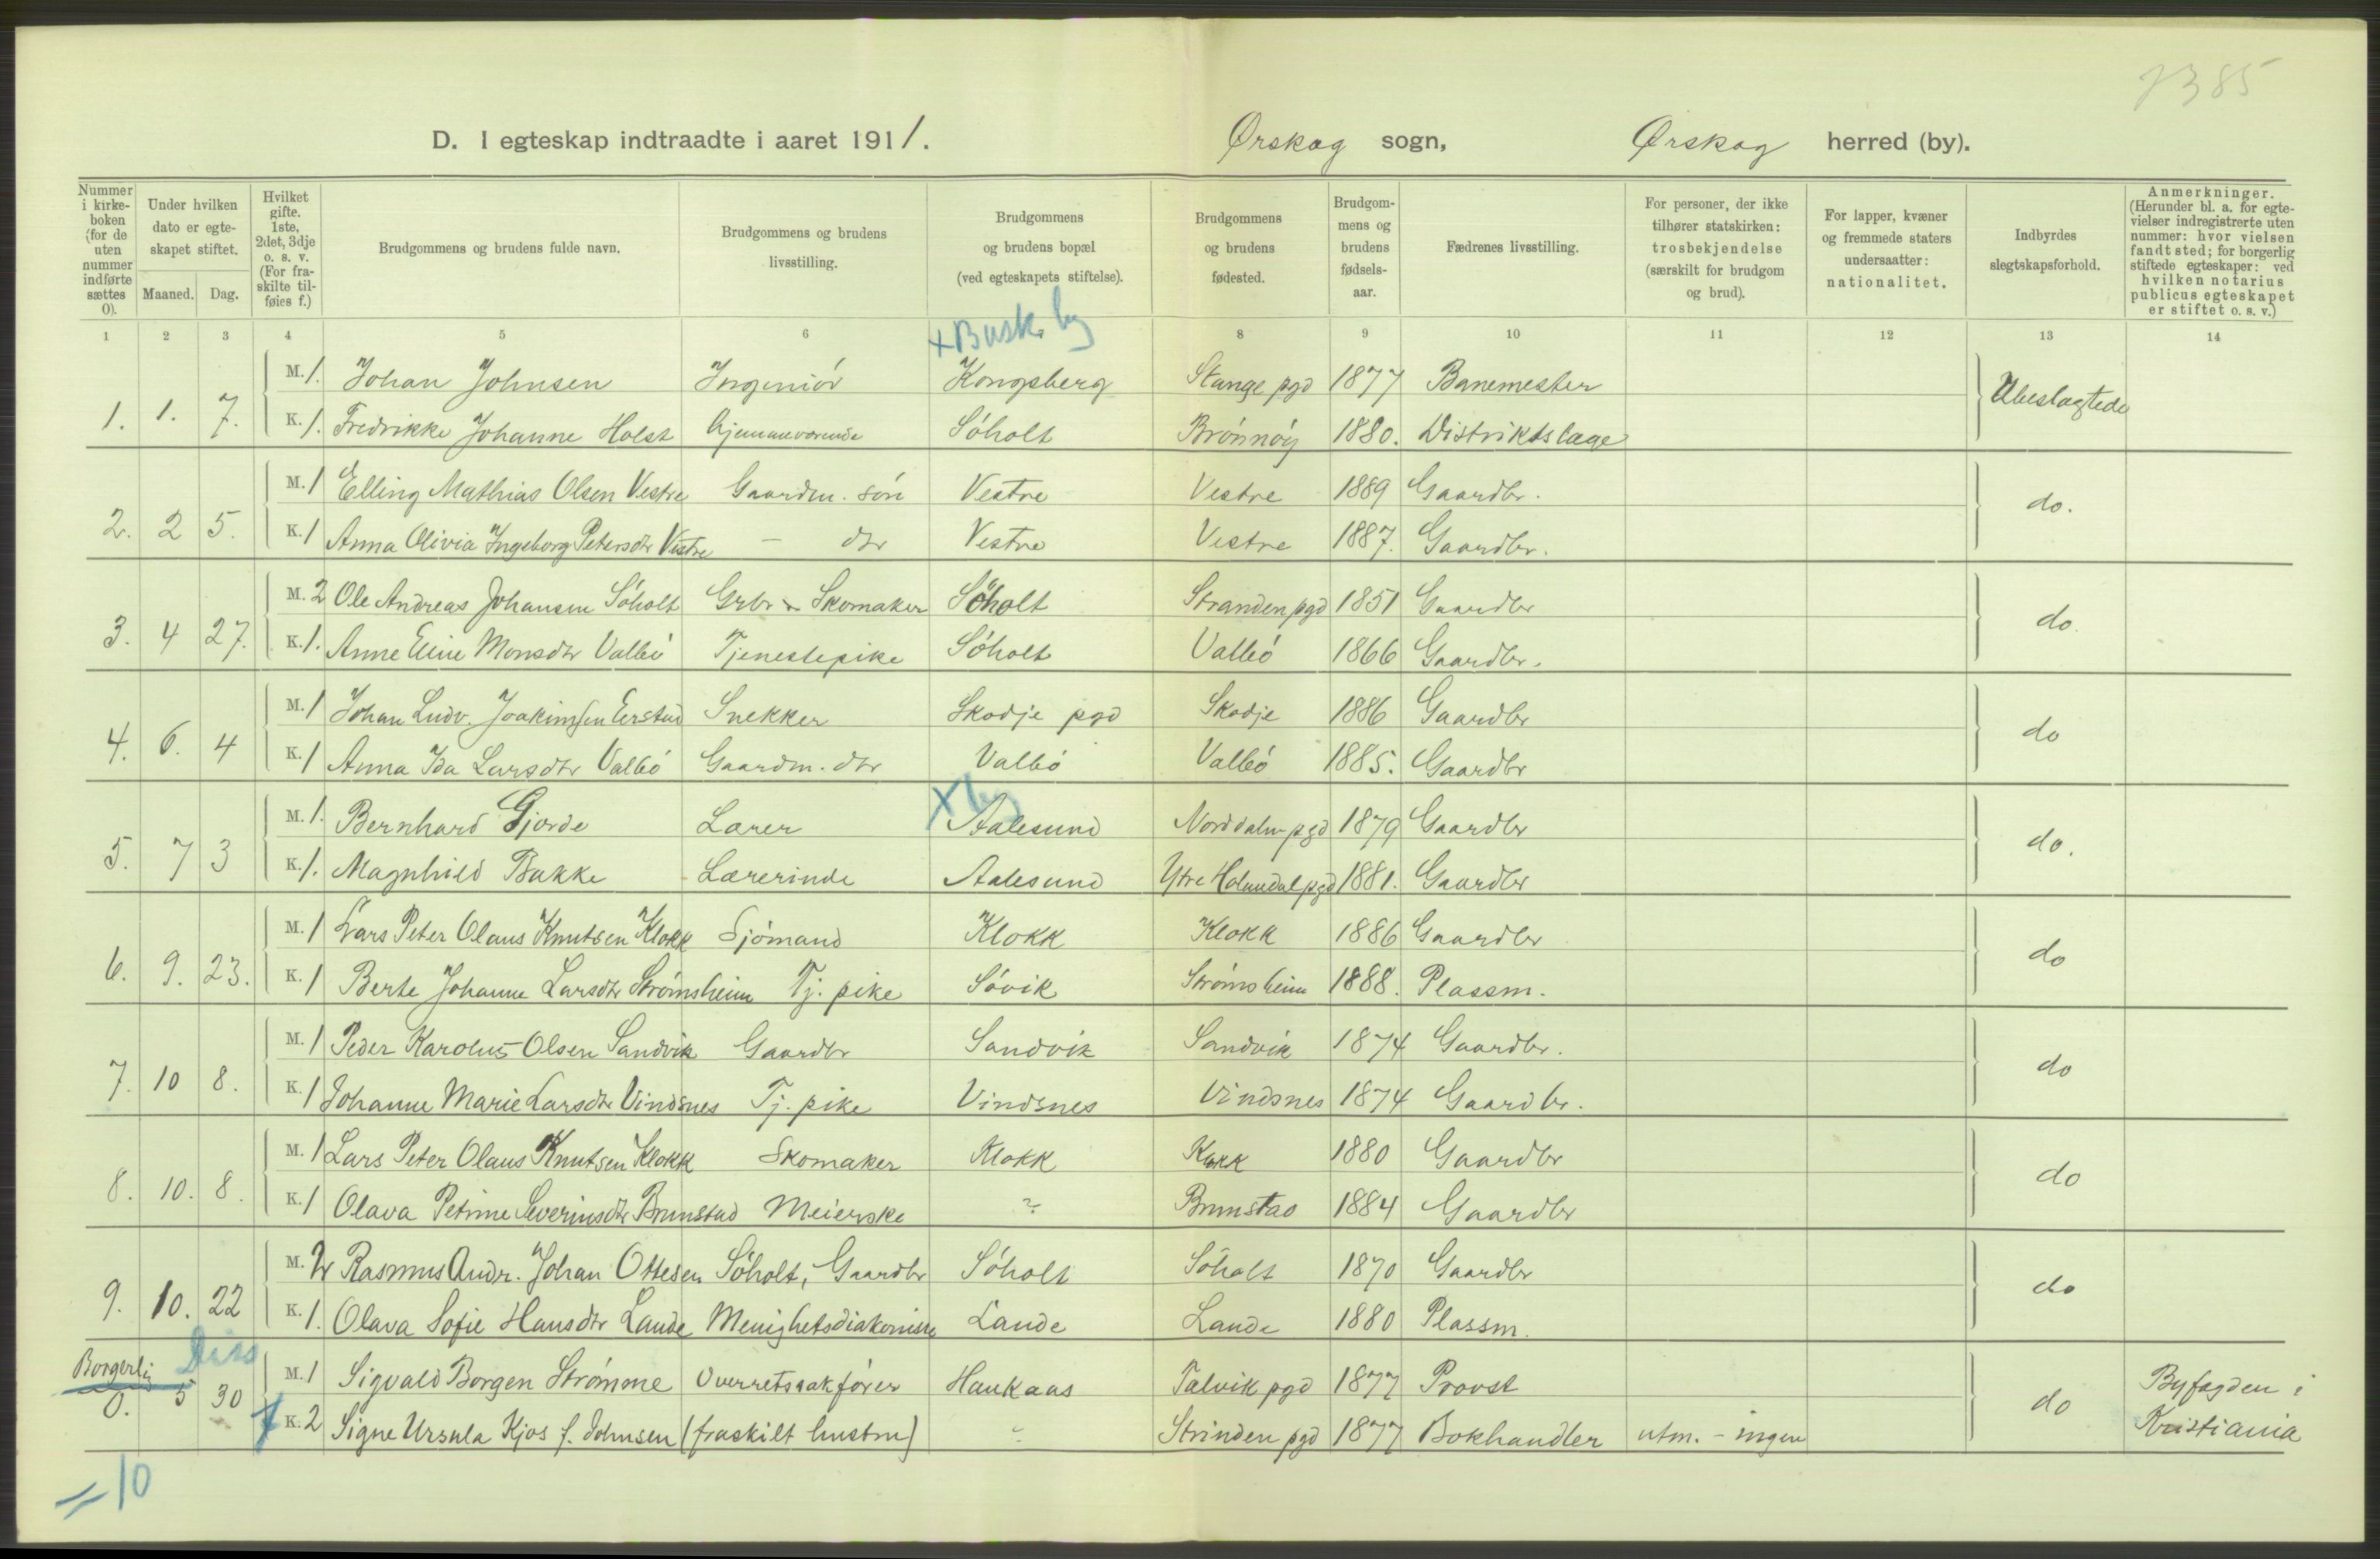 7385
D. I egteskap indtraadte i aaret 1911. Ørskog sogn, Ørskog herred (by).
Nummer i kirkeboken (for de uten nummer indførte sættes 0). Under hvilken dato er egteskapet stiftet. Maaned. Dag. Hvilket gifte. 1ste, 2det, 3dje o. s. v. (For fraskilte tilføies f.) Brudgommens og brudens fulde navn. Brudgommens og brudens livsstilling. Brudgommens og brudens bopæl (ved egteskapets stiftelse). Brudgommens og brudens fødested. Brudgommens og brudens fødselsaar. Fædrenes livsstilling. For personer, der ikke tilhører statskirken: trosbekjendelse (særskilt for brudgom og brud). For lapper, kvæner og fremmede staters undersaatter: nationalitet. Indbyrdes slegtskapsforhold. Anmerkninger. (Herunder bl. a. for egtevielser indregistrerte uten nummer: hvor vielsen fandt sted; for borgerlig stiftede egteskaper: ved hvilken notarius publicus egteskapet er stiftet o. s. v.)
1 2 3 4 5 6 8 9 10 11 12 13 14
+ Busk. by
M. 1. Johan Johnsen Ingeniör Kongsberg Stange pgd 1877 Banemester
1. 1. 7. Ubeslagtede
K. 1. Fredrikke Johanne Holst hjemmeværende Söholt Brönnöy 1880. Distriktslæge
M. 1 Elling Mathias Olsen Vestre Gaardm. sön Vestre Vestre 1889 Gaardbr.
2. 2 5. do.
K. 1 Anna Olivia Ingeborg Petersdtr Vestre — dtr Vestre Vestre 1887. Gaardbr.
M. 2 Ole Andreas Johansen Söholt Grbr & Skomaker Söholt Stranden pgd 1851 Gaardbr
3. 4 27. do.
K. 1. Anne Eline Monsdtr Valbö Tjenestepike Söholt Valbö 1866 Gaardbr.
M. 1 Johan Ludv. Joakimsen Eerstad Snekker Skodje pgd Skodje 1886 Gaardbr
4. 6. 4 do
K. 1 Anna Ida Larsdtr Valbö Gaardm. dtr Valbö Valbö 1885. Gaardbr
X by
M. 1. Bernhard Gjerde Lærer Aalesund Norddalen pgd 1879 Gaardbr
5. 7 3 do.
K. 1. Magnhild Bakke Lærerinde Aalesund Ytre Holmedal pgd 1881. Gaardbr
M. 1 Lars Peter Olaus Knutsen Klokk Sjömand Klokk Klokk 1886 Gaardbr
6. 9. 23. do
K. 1 Berte Johanne Larsdtr Strömsheim Tj. pike Sövik Strömsheim 1888. Plassm.
M. 1 Peder Karolus Olsen Sandvik Gaardbr Sandvik Sandvik 1874 Gaardbr.
7. 10 8. do
K. 1 Johanne Marie Larsdtr Vindsnes Tj. pike Vindsnes Vindsnes 1874 Gaardbr.
M. 1 Lars Peter Olaus Knutsen Klokk Skomaker Klokk Klokk 1880 Gaardbr
8. 10. 8. do
K. 1 Olava Petrine Severinsdtr Brunstad Meierske ? Brunstad 1884 Gaardbr
M. 2 Rasmus Andr. Johan Ottesen Söholt, Gaardbr Söholt Söholt 1870 Gaardbr
9. 10. 22 do
K. 1. Olava Sofie Hansdtr Lande Menighetsdiakonisse Lande Lande 1880 Plassm.
Borgerlig Diss
M. 1 Sigvald Borgen Strömme Overretssakförer Haukaas Talvik pgd 1877 Provst
0. 5 30 do Byfogden i
K. 2 Signe Ursula Kjos f. Johnsen (fraskilt hustru) Strinden pgd 1877 Bokhandler utm. - ingen Kristiania
= 10